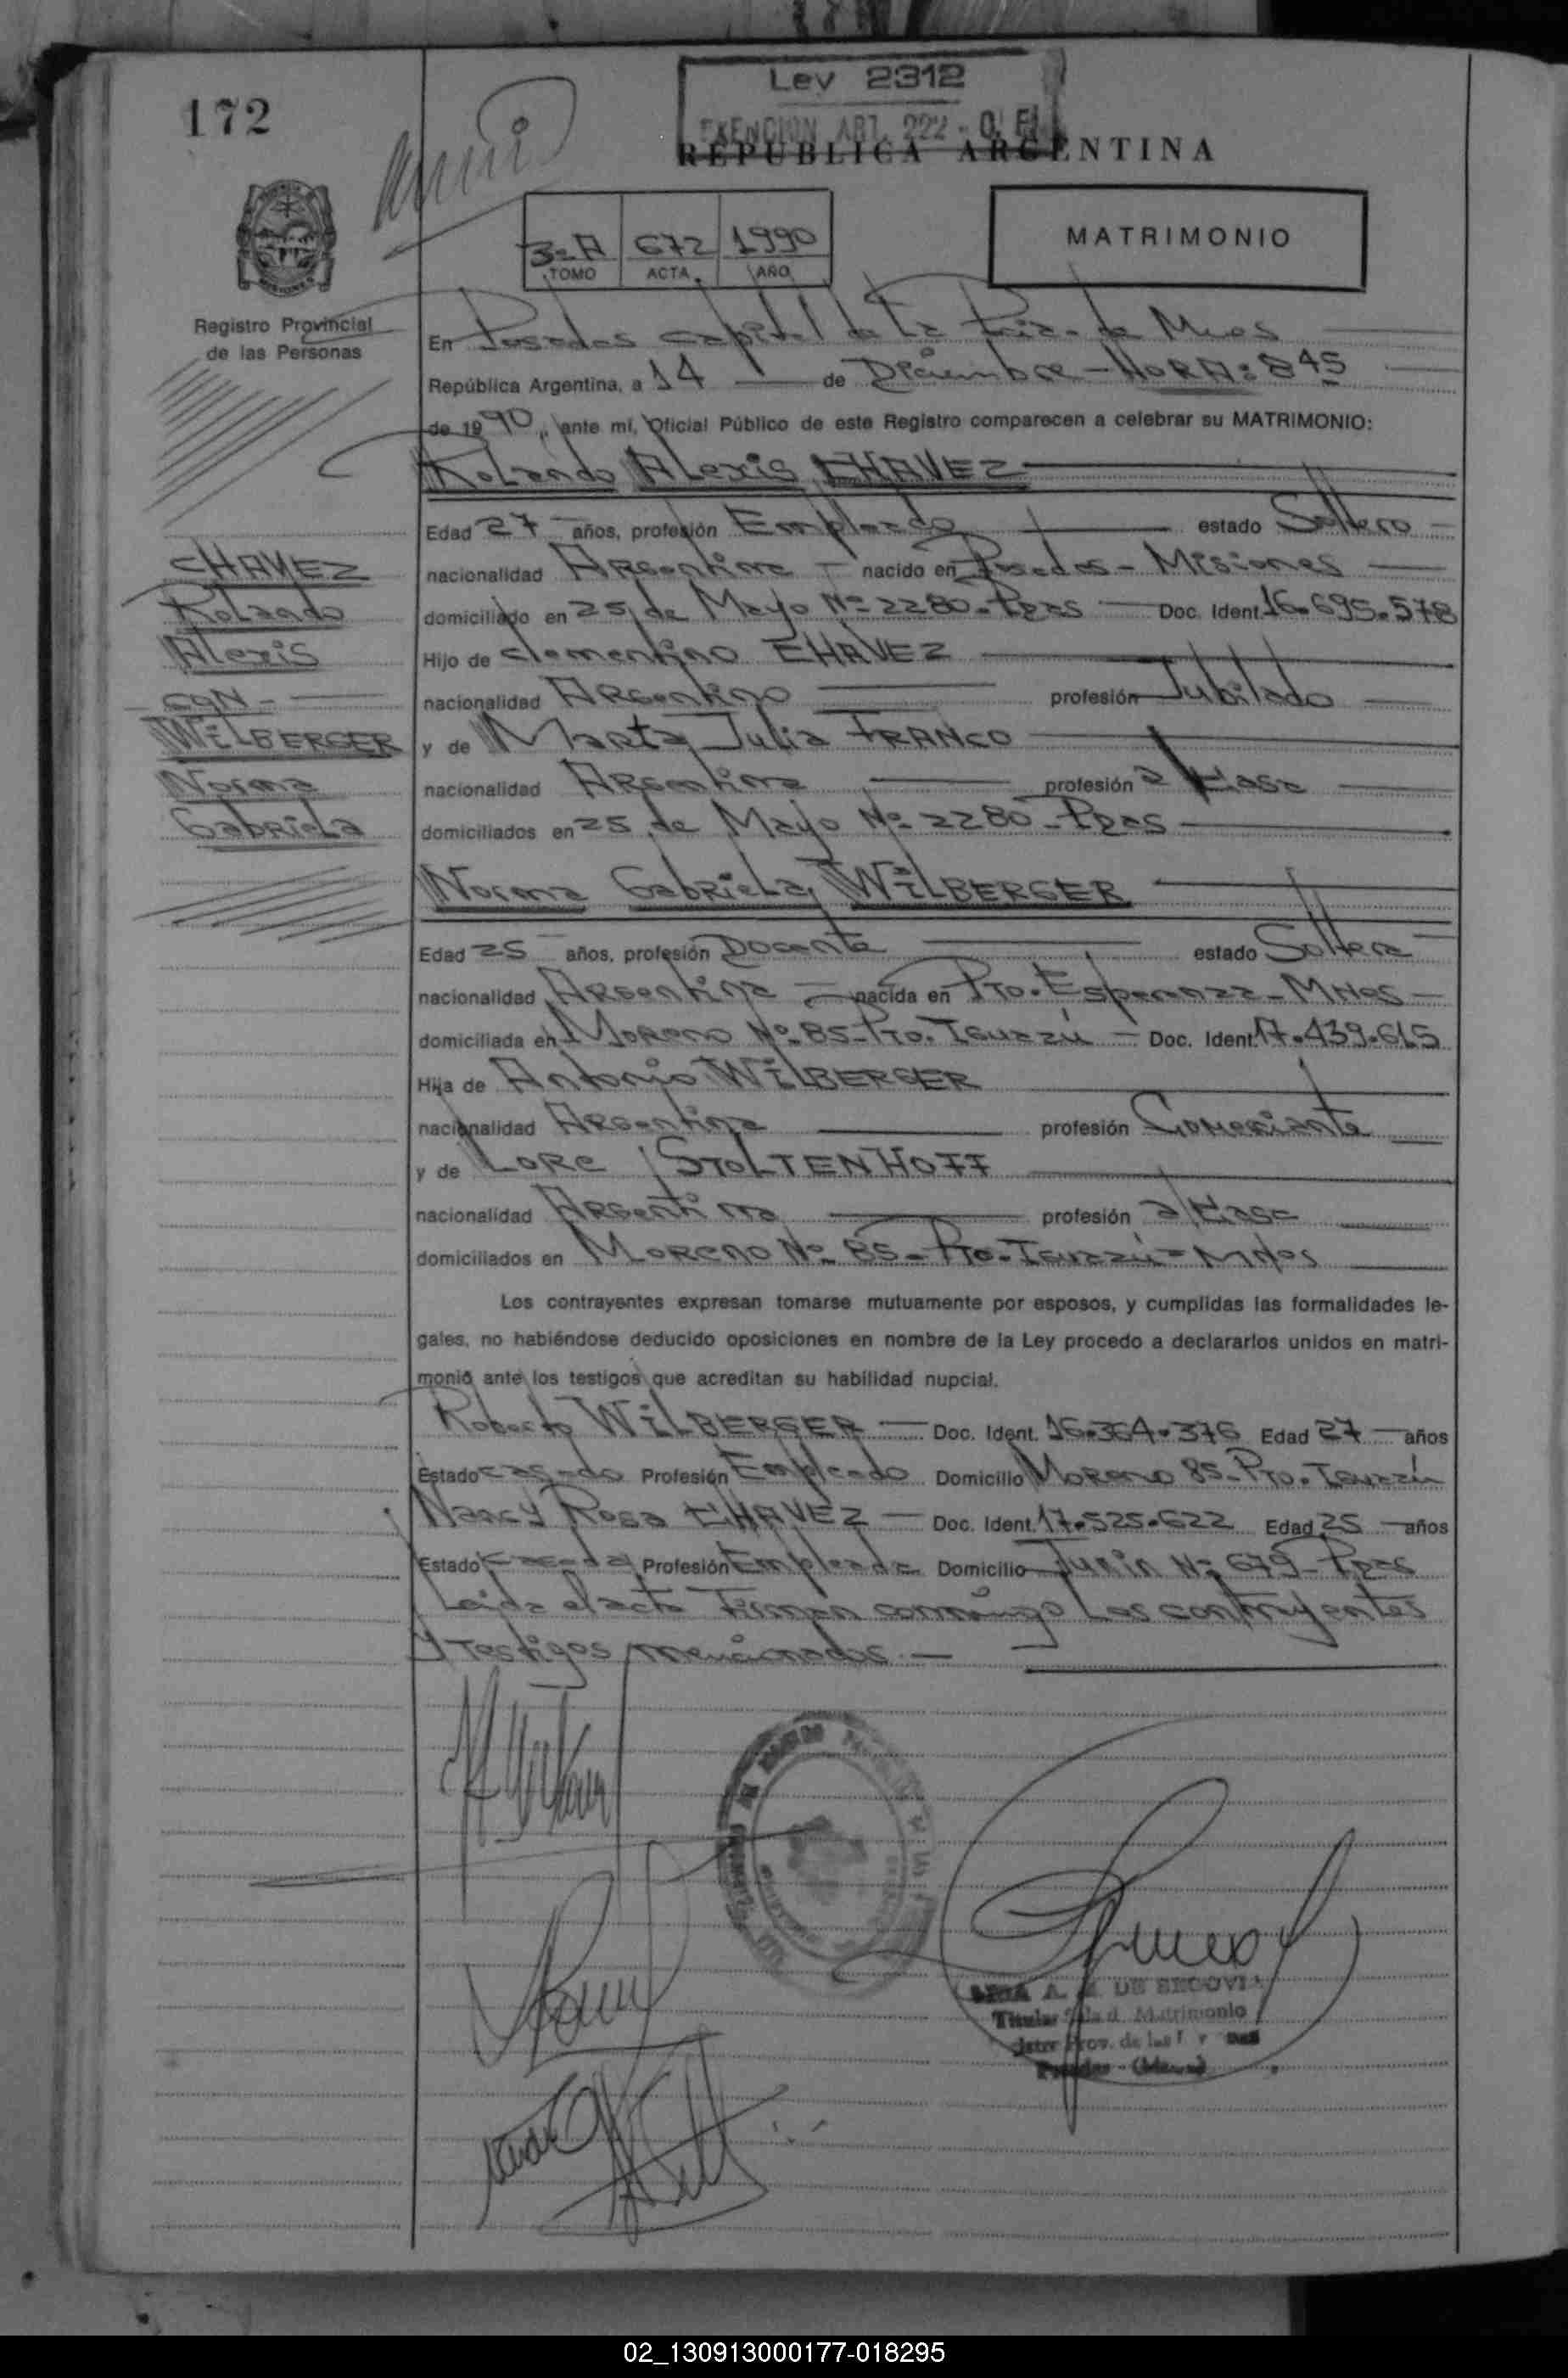 172
Ley 2312
EXENCION ART. 222 -
REPUBLICA ARGENTINA
3-A 672 1990
TOMO ACTA AÑO
MATRIMONIO
Registro Provincial
de las Personas
En Posadas capital de La Pcia. de Mnes
República Argentina, a 14 de Diciembre - HORA: 845
de 1990, ante mí, Oficial Público de este Registro comparecen a celebrar su MATRIMONIO:
Rolando Alexis CHAVEZ
Edad 27 años, profesión Empleado estado Soltero
nacionalidad Argentina nacido en Posadas - Misiones
domiciliado en 25 de Mayo Nº 2280 - Pdas Doc. Ident. 16.695.578
Hijo de Clementino CHAVEZ
nacionalidad Argentino profesión Jubilado
y de Marta Julia FRANCO
nacionalidad Argentina profesión a/casa
domiciliados en 25 de Mayo Nº 2280 - Pdas
Norma Gabriela WILBERGER
Edad 25 años, profesión Docente estado Soltera
nacionalidad Argentina nacida en Pto. Esperanza - Mnes
domiciliada en Moreno Nº 85 - Pto. Iguazú Doc. Ident. 17.439.615
Hija de Antonio WILBERGER
nacionalidad Argentina profesión Comerciante
y de Lore STOLTENHOFF
nacionalidad Argentina profesión a/casa
domiciliados en Moreno Nº 85 - Pto. Iguazú - Mnes
Los contrayentes expresan tomarse mutuamente por esposos, y cumplidas las formalidades le-
gales, no habiéndose deducido oposiciones en nombre de la Ley procedo a declararlos unidos en matri-
monio ante los testigos que acreditan su habilidad nupcial.
Roberto WILBERGER Doc. Ident. 16.364.376 Edad 27 años
Estado casado Profesión Empleado Domicilio Moreno 85 - Pto. Iguazú
Nancy Rosa CHAVEZ Doc. Ident. 17.525.622 Edad 25 años
Estado casada Profesión Empleada Domicilio Junin Nº 679 - Pdas
Leida el acta Firman conmigo Los contrayentes
y Testigos mencionados.
CHAVEZ
Rolando
Alexis
CON -
WILBERGER
Norma
Gabriela
A. DE SEGOVIA
Titular Sala d Matrimonio
Prov. de las
Posadas
02_130913000177-018295